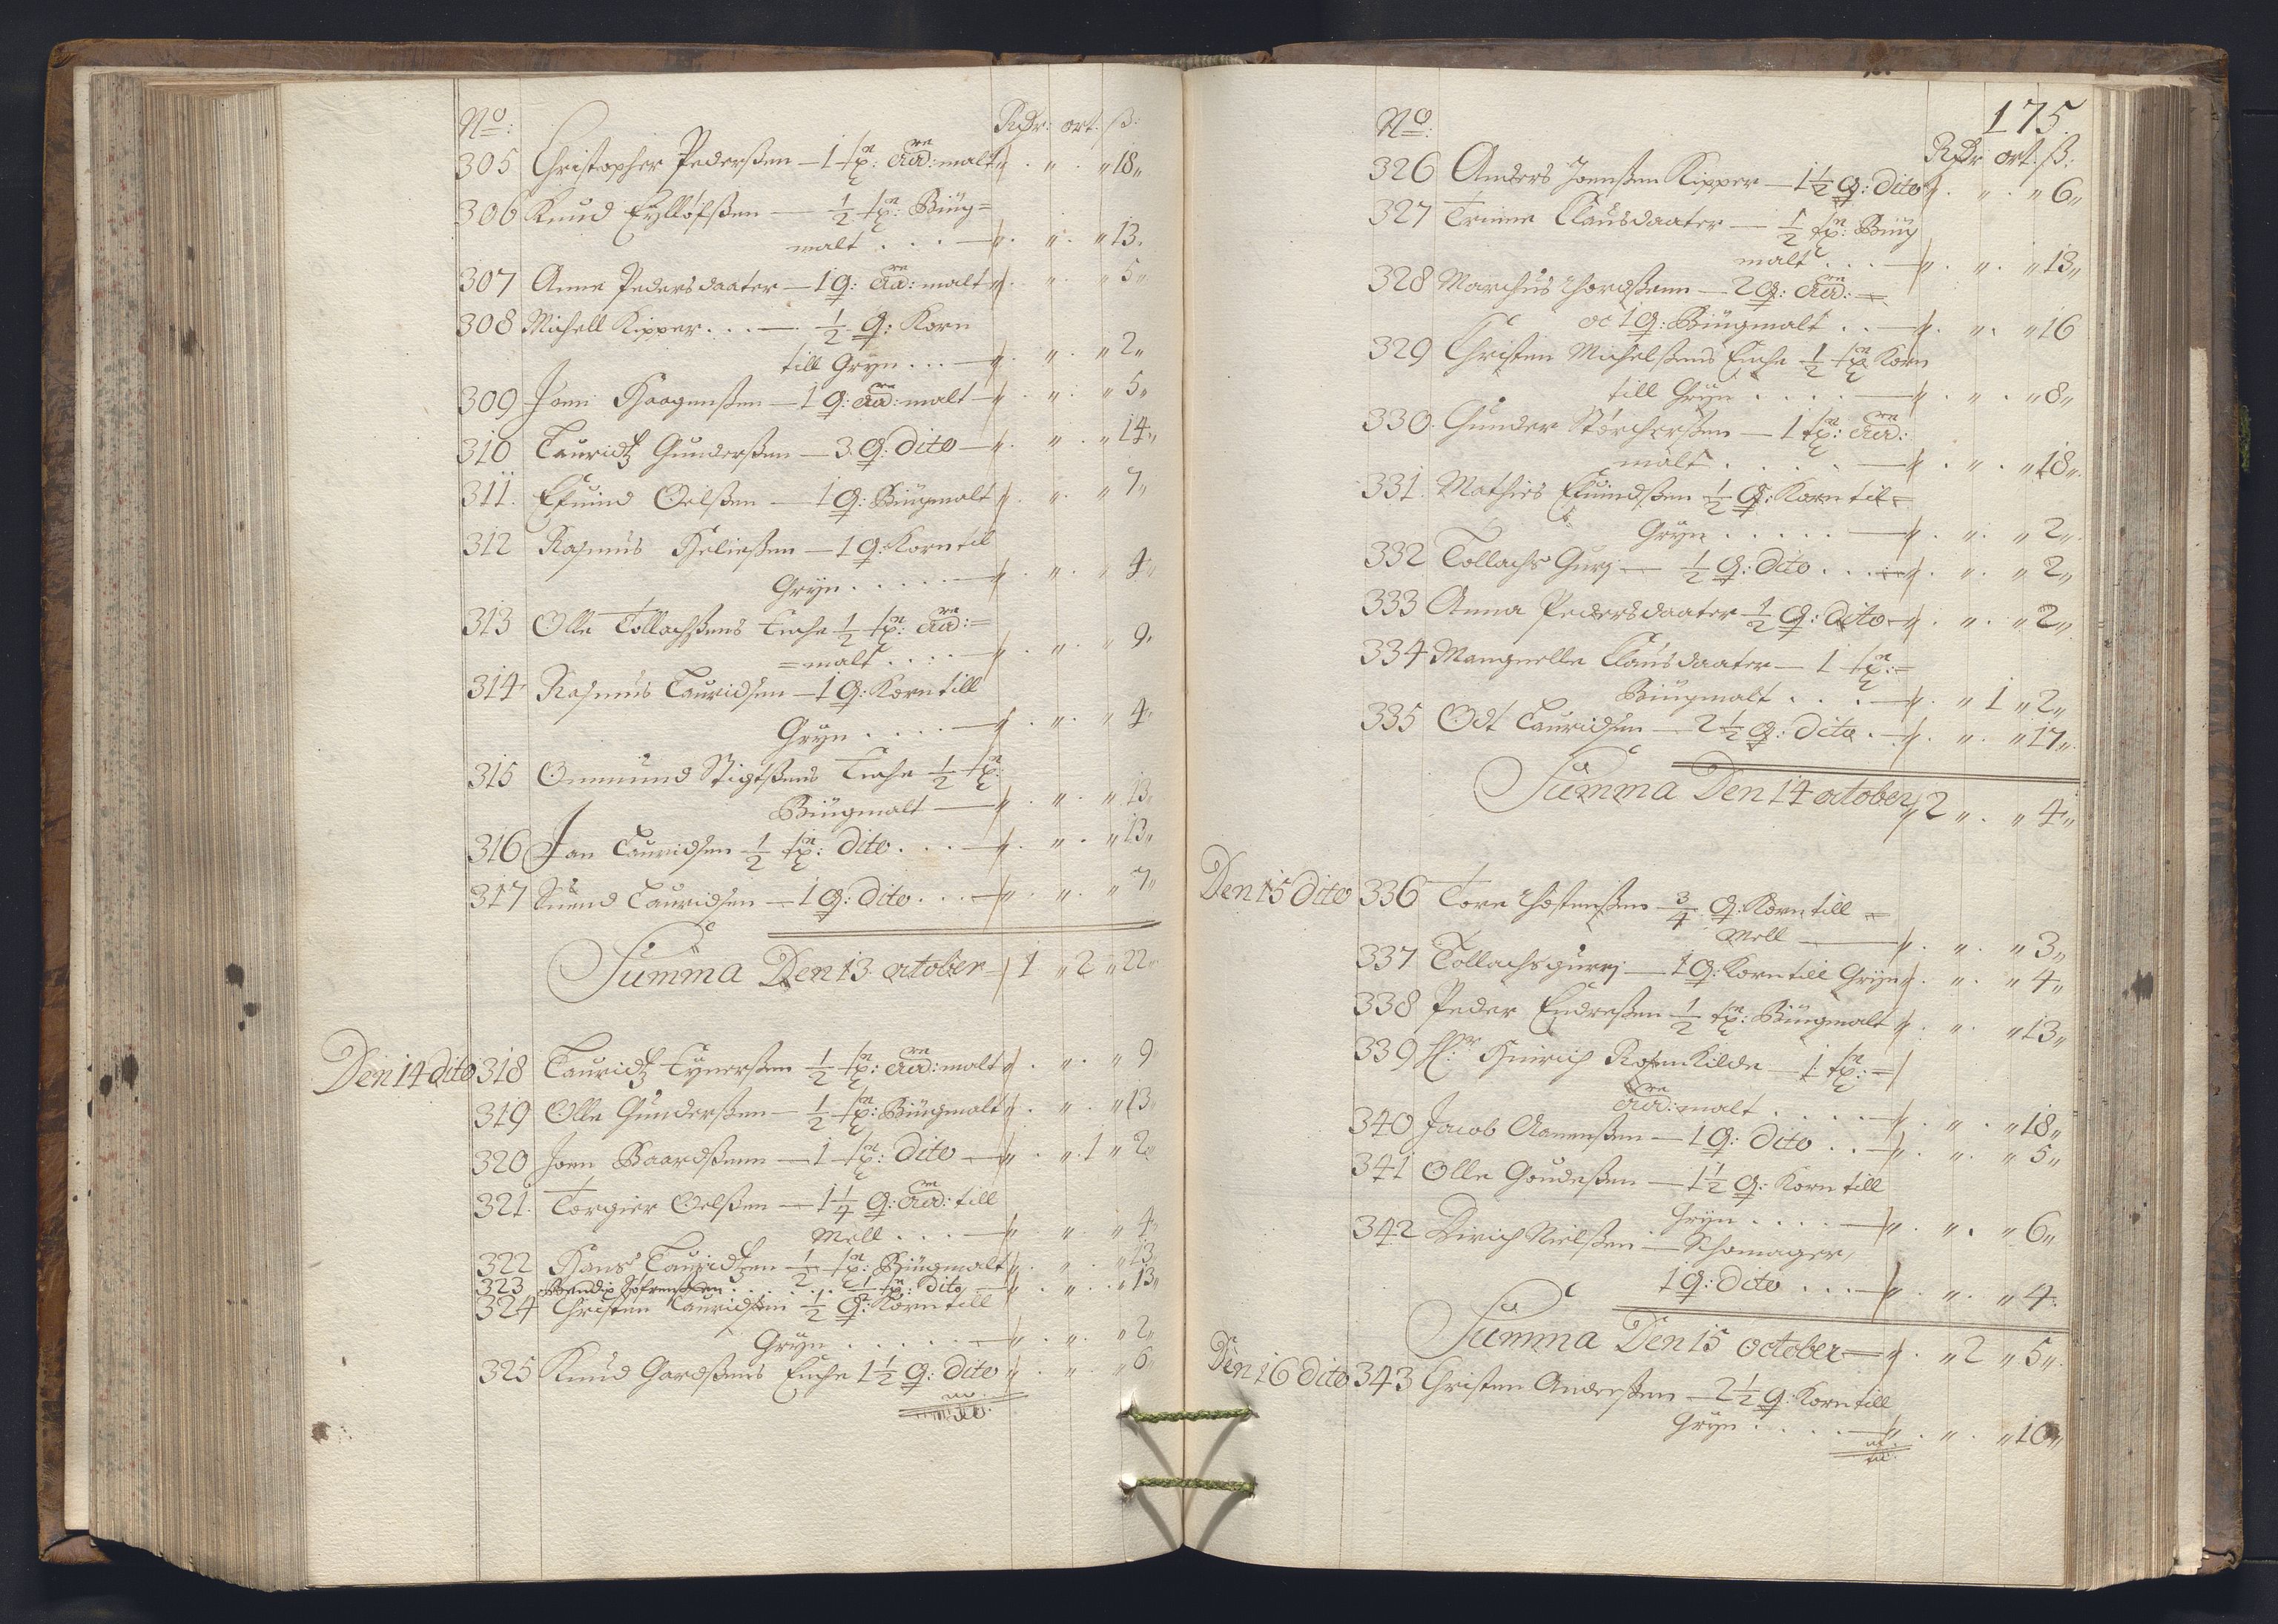 No: Rdr: ort: ß:
305 Christopher Pederßen — 1 tp: aad: malt „ . „ . „ 18 „
306 Knud Eylloffßen — ½ tp: Biug=
malt . . . — „ . „ . „ 13 „
307 Anne Pedersdaater — 1 q: aad: malt „ . „ . „ 5 „
308 Michell Kipper . . . — ½ q: Korn
till Gryn . . . — „ . „ . „ 2 „
309 Joen Haagenßen — 1 q: aad: malt — „ . „ . „ 5 „
310 Lauridtz Gunderßen — 3 q: dito — „ . „ . „ 14 „
311 Efuind Oelßen — 1 q: Biugmalt „ . „ . „ 7 „
312 Rasmus — 1 q: Korn til
Gryn . . . . . — „ . „ . „ 4 „
313 Olle Tollachßens Enche ½ tp: aad: =
= malt . . . . — „ . „ . „ 9 „
314 Rasmus Lauridsen — 1 q: Korn till
Gryn . . . . — „ . „ . „ 4 „
315 Ommund Stigtßens Enche ½ tp:
Biugmalt — „ . „ . „ 13 „
316 Jan Lauridsen ½ tp: dito . . . — „ . „ . „ 13 „
317 Suend Lauridsen — 1 q: dito . . . — „ . „ . „ 7 „
Summa Den 13 october — 1 „ 2 „ 22 „
Den 14 dito 318 Lauridtz Tynerßen ½ tp: aad: malt „ . „ . „ 9 „
319 Olle Gunderßen — ½ tp: Biugmalt „ . „ . „ 13 „
320 Joen Baardßenn — 1 tp: dito — „ . „ 1 „ 2 „
321 Torgier Oelßen — 1¼ q: aad: till
Mell . . . — „ . „ . „ 4 „
322 Hans Lauridtzen — ½ tp: Biugmalt „ . „ . „ 13 „
323 Bendix Sofrenßen . . . . . ½ tp: dito — „ . „ . „ 13 „
324 Christen Lauridsen ½ q: Korn till
Gryn . . . . . — „ . „ . „ 2 „
325 Knud Gardßens Enche 1½ q: dito „ . „ . „ 6 „
175.
No: Rdr ort: ß:
326 Anders Joenßen Kipper — 1½ q: dito „ . „ . „ 6 „
327 Trinne Clausdaater — ½ tp: Biug
malt . . . — „ . „ . „ 13 „
328 Marchus Thordßenn — 2 q: aad: =
oc 1 q: Biugmalt . . — „ . „ . „ 16
329 Christen Michelßens Enche ½ tp Korn
till Gryn . . . . — „ . „ . „ 8 „
330 Gunder Storcherßen — 1 tp: aad:
malt . . . . . — „ . „ . „ 18 „
331 Mathies Efuindßen ½ q: Korn til =
Gryn . . . . . — „ . „ . „ 2 „
332 Tollachs Gurj — ½ q: dito . . . — „ . „ . „ 2 „
333 Anna Pedersdaater ½ q: dito — „ . „ . „ 2 „
334 Mangnelle Clausdaater — 1 tp: =
Biugmalt . . . — „ . „ 1 „ 2 „
335 Odt Lauridsen — 2½ q: dito . — „ . „ . „ 17 „
Summa Den 14 october „ 2 „ . „ 4 „
Den 15 dito 336 Tore Thostenßen ¾ q: Korn till =
Mell — „ . „ . „ 3 „
337 Tollachs gurrj — 1 q: Korn till Gryn „ . „ . „ 4 „
338 Peder Endreßen ½ tp: Biugmalt „ . „ . „ 13 „
339 Hr: Hinrich Rosenkilde — 1 tp: =
aad: malt . . . . . — „ . „ . „ 18 „
340 Jacob Aanenßen — 1 q: dito . . — „ . „ . „ 5 „
341 Olle Goudeßen — 1½ q: Korn till
Gryn . . . . — „ . „ . „ 6 „
342 Dirich Nielßen — Schomager,
1 q: dito . . . — „ . „ . „ 4 „
Summa Den 15 october — „ . „ 2 „ 5 „
Den 16 dito 343 Christen Anderßen — 2½ q: Korn till
Gryn . . . . — „ . „ . „ 10 „